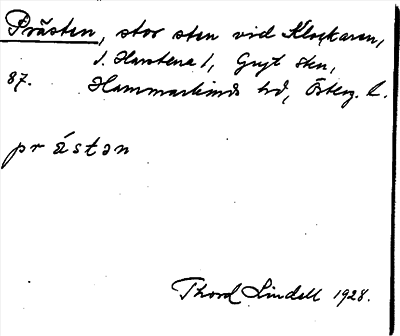 Prästen, stor sten vid Klockaren,
i. Harstena 1, Gryt skn,
87. Hammarkinds hd, Österg. l.
prástən
Thord Lindell 1928.